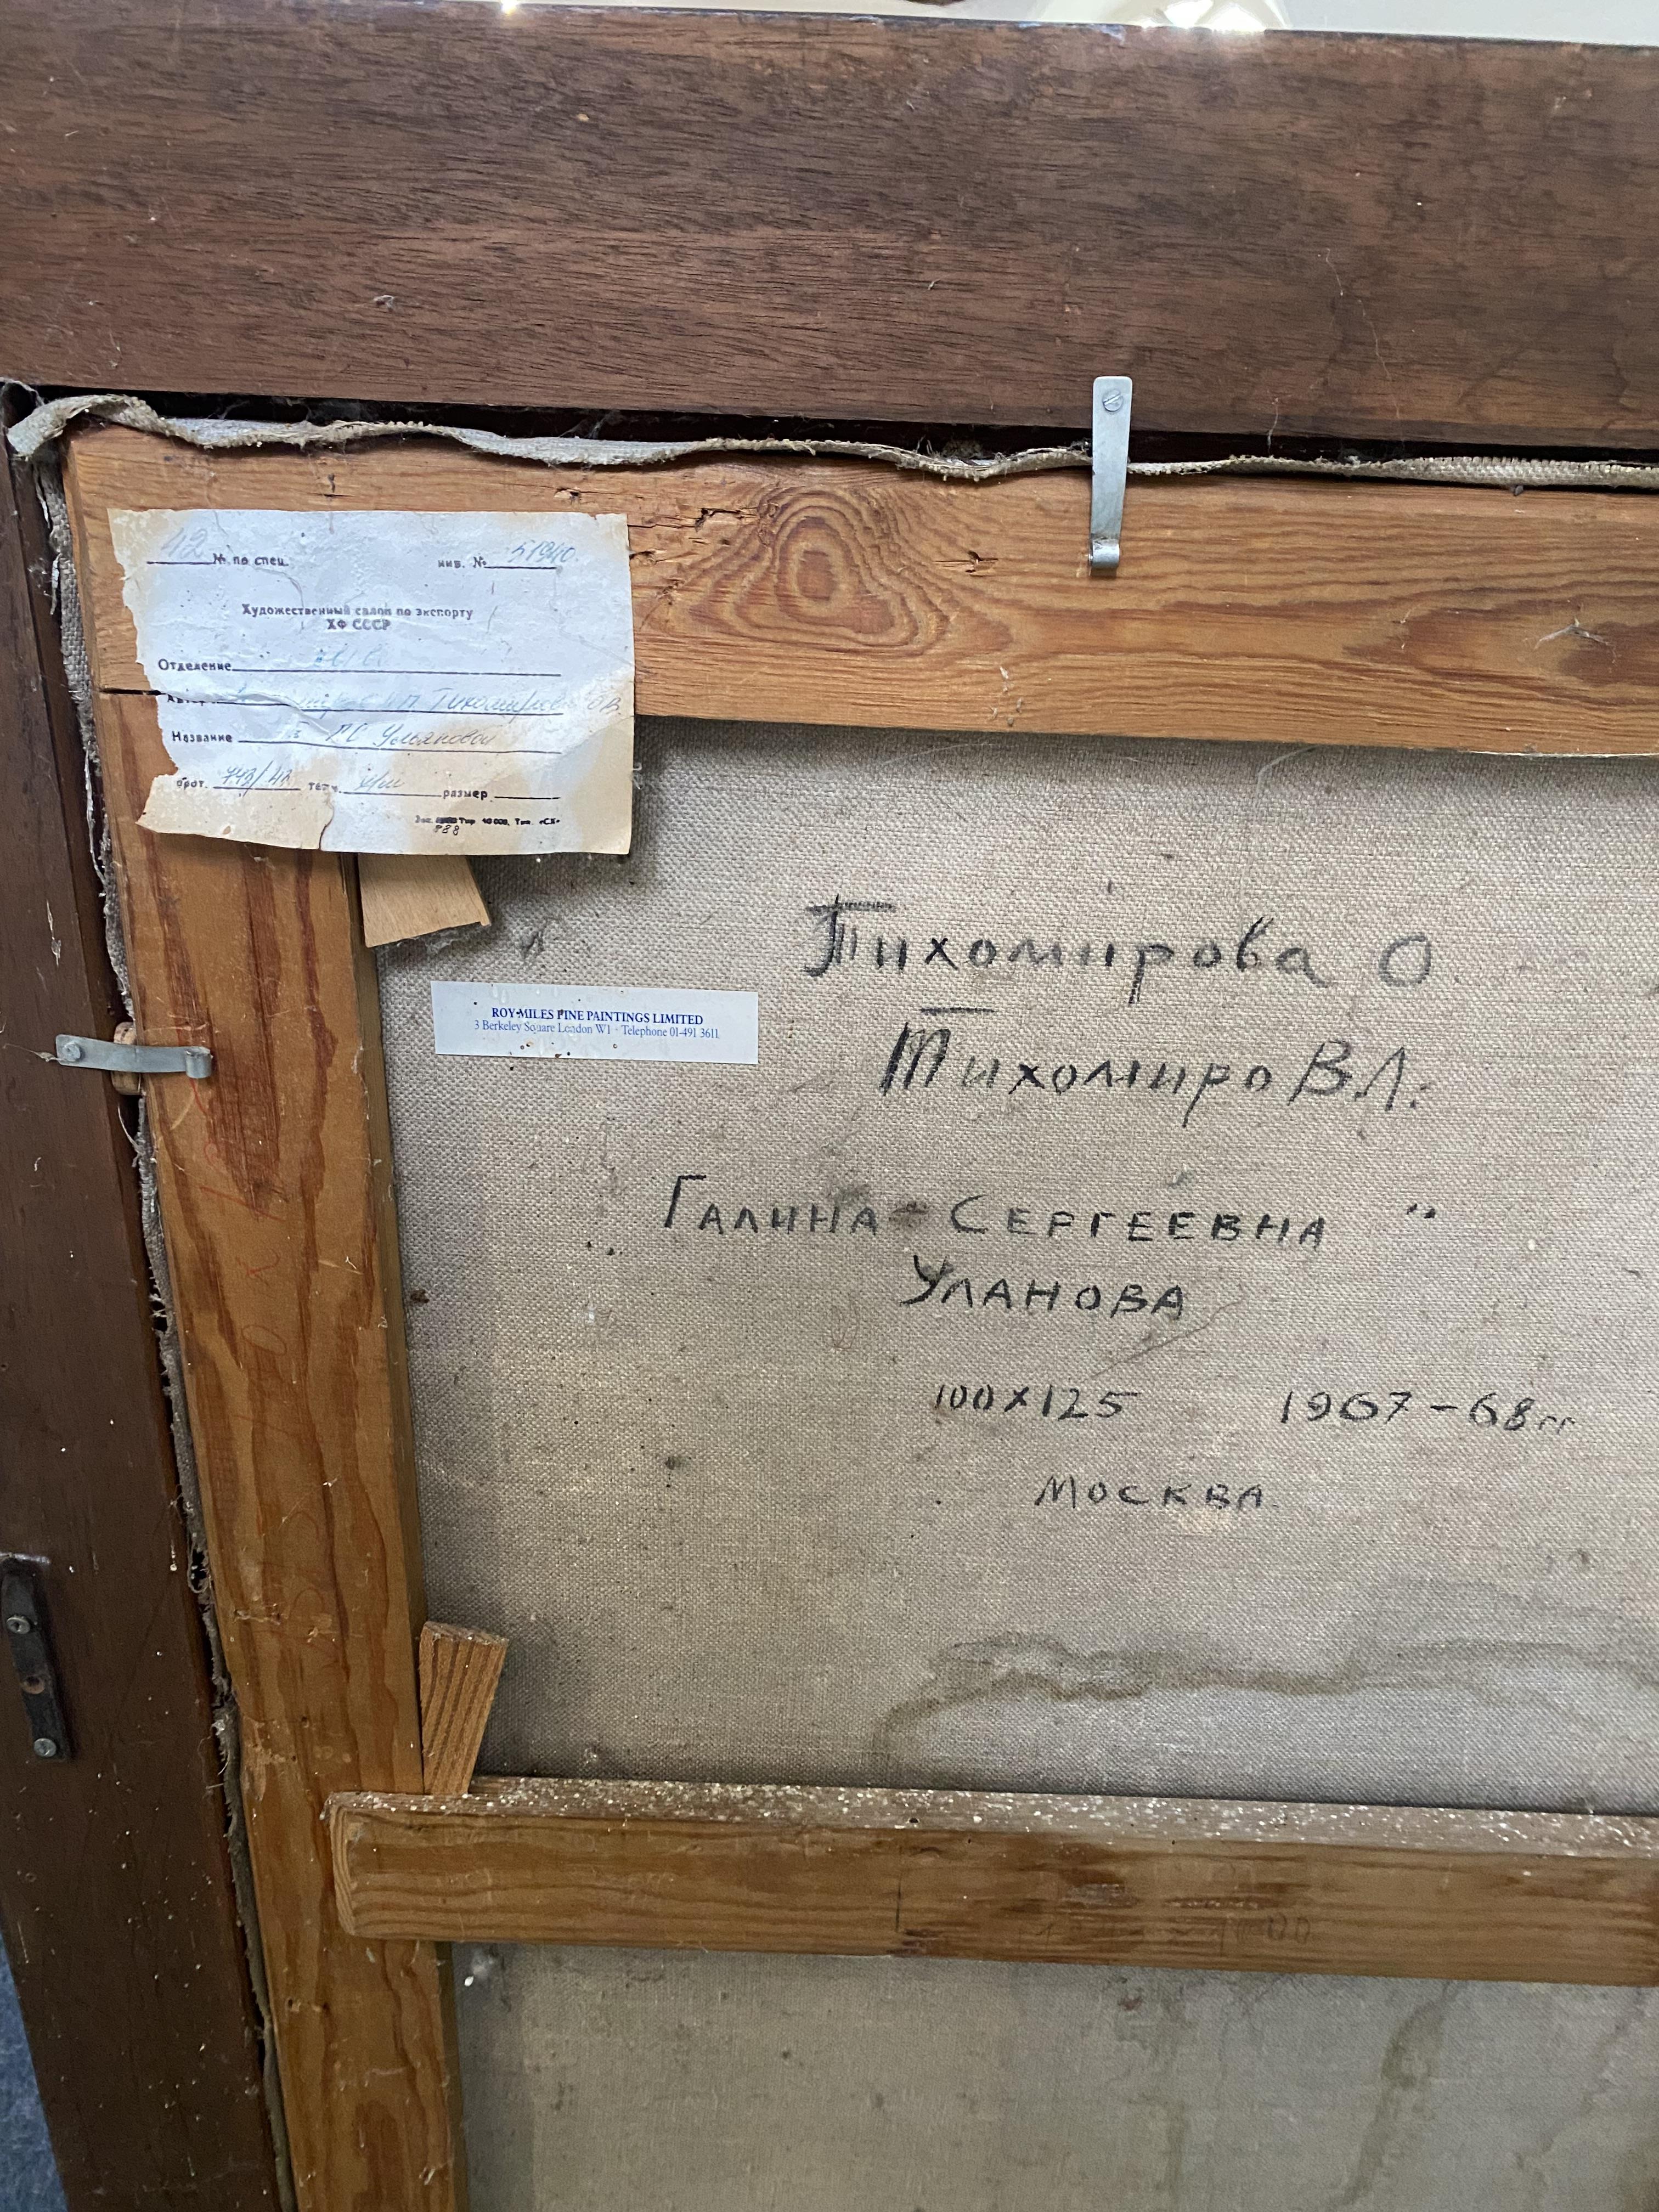 42 № по спец. инв. № 51940.
Художественный салон по экспорту
ХФ СССР
Отделение
Тихомиров
Название Г С Ульяновой
прот. 743/42 техн. х/м размер
Зак. Тир. 10 000, Тип. «СХ»
888
Тихомирова О
ROY MILES FINE PAINTINGS LIMITED
3 Berkeley Square London W1 · Telephone 01-491 3611
Тихомиров В.Л.
Галина Сергеевна "
Уланова
100х125 1967-68гг
Москва